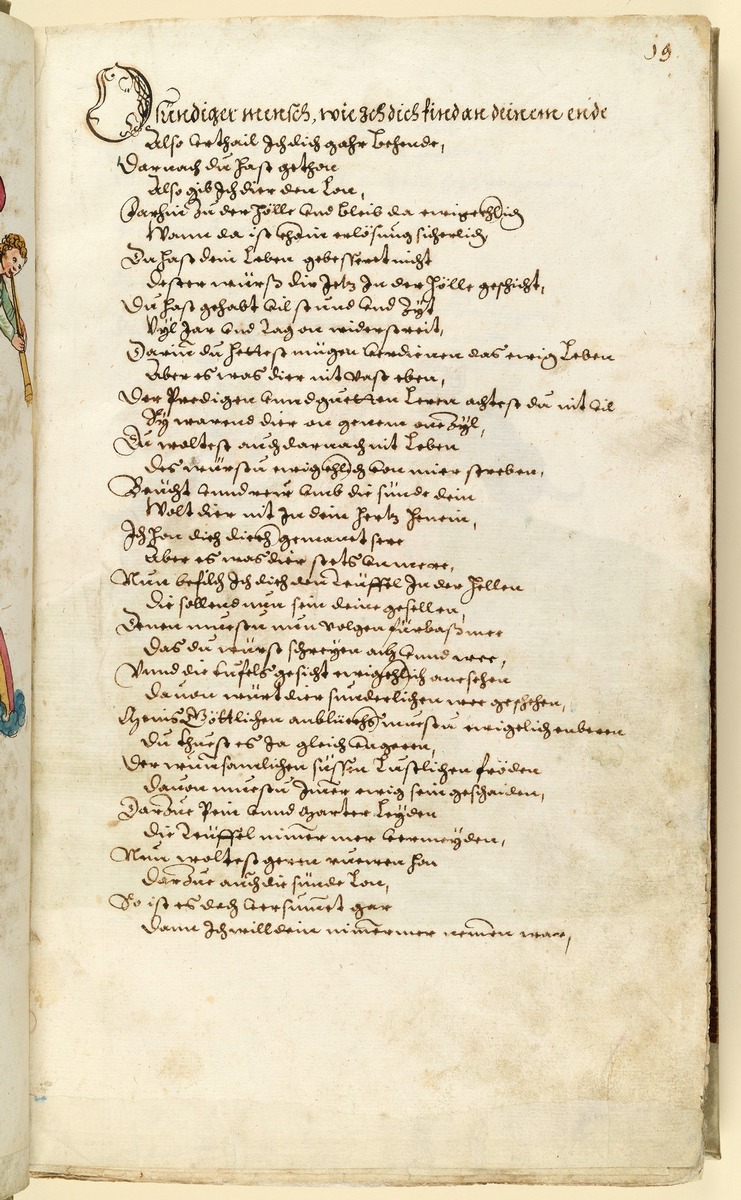 19
O sündiger mensch, wie Ich dich find an deinem ende
Also verthail Ich dich gahr behende,
Darnach du hast gethon
Also gib Ich dier den Lon,
Farhin zu der Hölle vnd bleib da ewigchlich
Wann da ist chain erlösung sicherlich
Du hast dein Leben gebesseret nicht
Dester würß dir Jetz In der Hölle geschicht,
Du hast gehabt vil stund vnd Zyt
Vyl Jar vnd Tag on widerstreit,
Darinn du hettest mügen verdienen das ewig Leben
Aber es was dier nit vast eben,
Der Predigen vnnd guetten Leren achtest du nit vil
Sy warend dier on genem one Zyl,
Du woltest auch darnach nit Leben
Des würstu ewigchlich von mier streben,
Beücht vnnd reüe vmb die sünde dein
Wolt dier nit In dein Hertz hinein,
Ich hon dich dickh gemanet sere
Aber es was dier stets vnmere,
Nun befilch Ich dich den Teüffel In der Hellen
Die sollend nun sein deine gesellen,
Denen muestu nun volgen fürbaß mer
Das du würst schreyen ach vnnd wee,
Vnnd die tüfels gesicht ewigchlich ansehen
Dauon würt dier sunderlichen wee geschehen,
Meins Göttlichen anblickhs muestu ewigelich enberen
Du thuest es Ja gleich vngeren,
Der wunnsamlichen süssen Lustlichen fröden
Dauon muestu Jmer ewig sein geschaiden,
Darzue Pein vnnd Marter Leyden
Die Teüffel nimer mer vermeyden,
Nun woltest geren ruewen hon
Darzue auch die sünde Lon,
So ist es doch versumet gar
Dann Ich will dein nimermer nemen war,